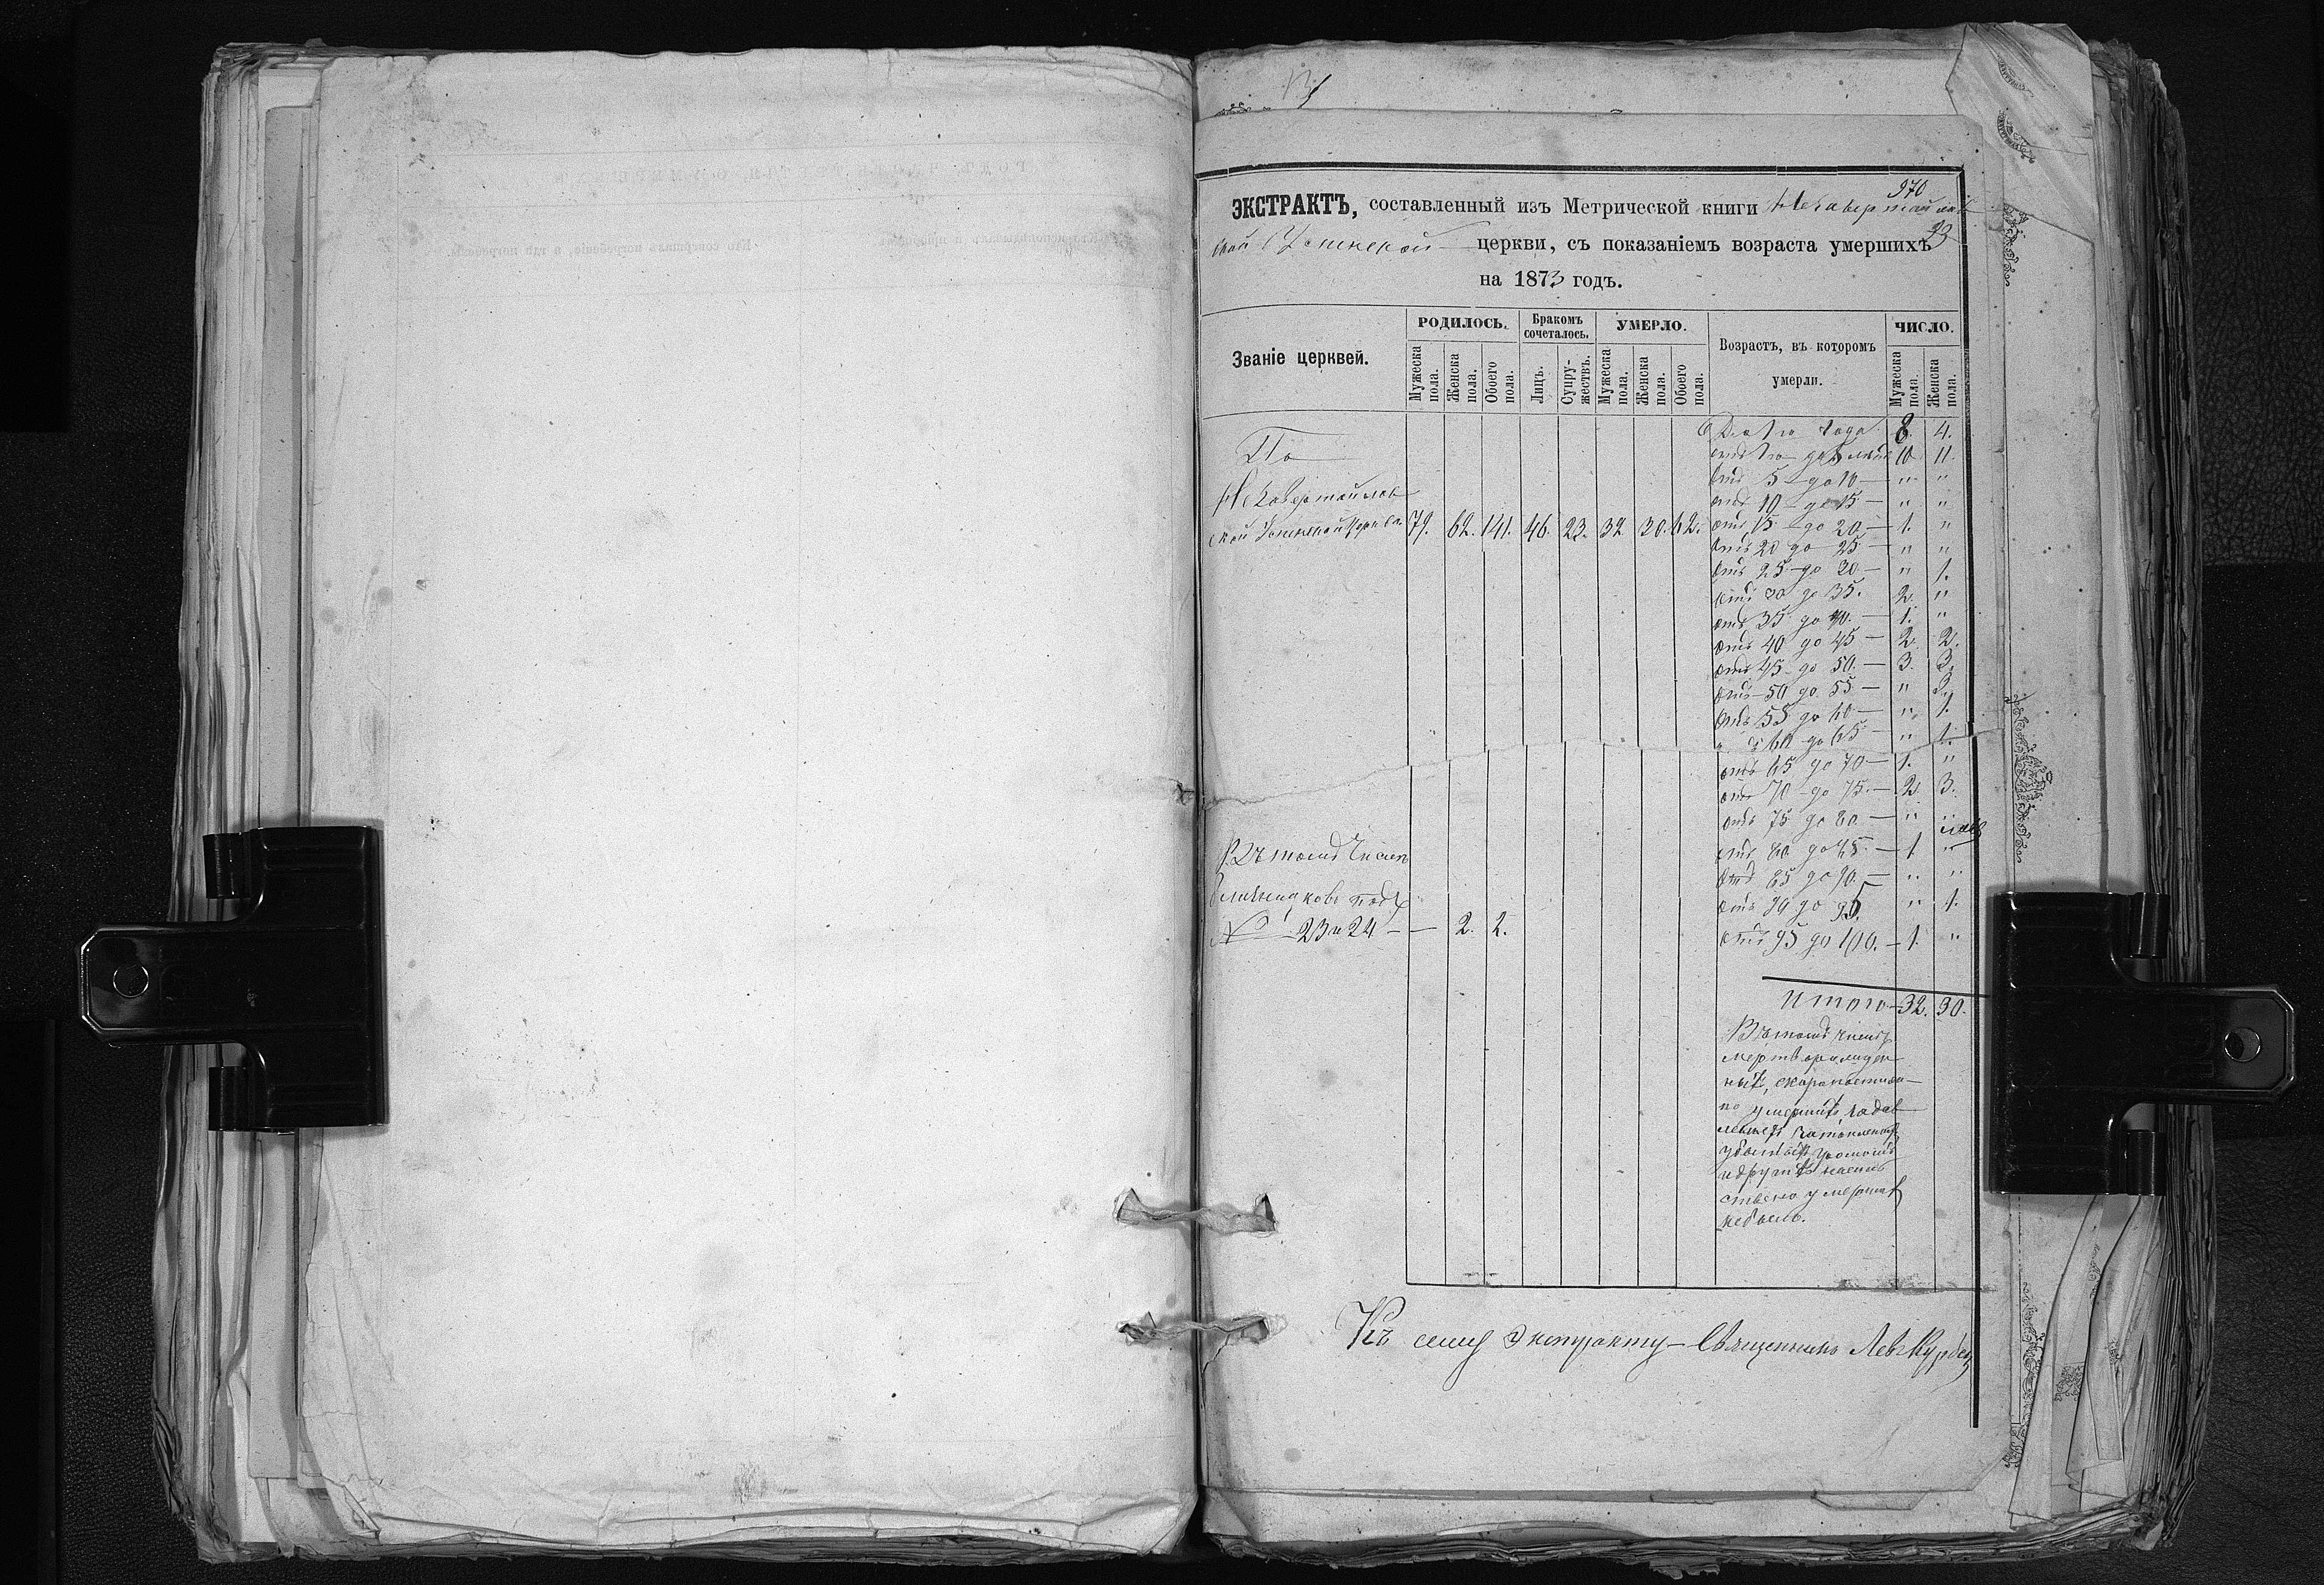 970
ЭКСТРАКТЪ, составленный изъ Метрической книги
церкви, съ показаніемъ возраста умершихъ
на 1873 годъ.
Званіе церквей.
РОДИЛОСЬ.
Бракомъ сочеталось.
УМЕРЛО.
Возрастъ, въ которомъ умерли.
ЧИСЛО.
Мужеска пола.
Женска пола.
Обоего пола.
Лицъ.
Супружествъ.
Мужеска пола.
Женска пола.
Обоего пола.
Мужеска пола.
Женска пола.
По
ской Успенской церкви 79. 62. 141. 46. 23. 32. 30. 62.
до 1го года. 8. 4.
отъ 1го до 5 лѣтъ 10 11
отъ 5 — до 10 — " "
отъ 10 — до 15 — " "
отъ 15 — до 20. — 1. "
отъ 20 до 25 — " "
отъ 25 — до 30. — " 1.
отъ 30 до 35. 2. "
отъ 35 до 40. — 1. "
отъ 40 до 45 — 2. 2.
отъ 45 до 50. — 3. 3.
отъ 50 до 55 — " 3.
отъ 55 до 60 — " 1.
60 до 65 — " 1.
отъ 65 до 70 — 1. "
отъ 70 — до 75. — 2. 3.
отъ 75 до 80. — " "
отъ 80 до 85. — 1 "
отъ 85 до 90. — " "
отъ 90 до 95. " 1.
отъ 95 до 100. — 1. "
Въ томъ числѣ
близнецовъ подъ
№ 23 и 24 — — 2. 2.
Итого — 32. 30.
Въ томъ числѣ
мертворожден-
ныхъ, скоропостиж-
но умершихъ
и другихъ
умершихъ
не было.
Къ сему Экстракту — Священникъ Левъ